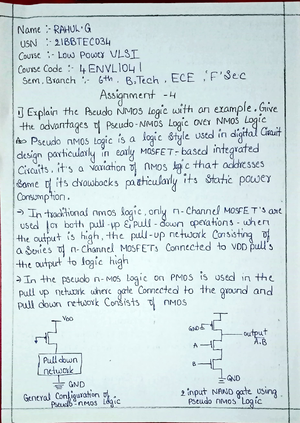 Name :- RAHUL·G
USN :- 21BBTEC034
Course :- Low Power VLSI
Course Code :- 4ENVL1041
Sem, Branch :- 6th, B.Tech, ECE, 'F' Sec
Assignment - 4
1] Explain the Pseudo NMOS Logic with an example. Give
the advantages of Pseudo-NMOS Logic over NMOS Logic
Pseudo nmos logic is a logic style used in digital Circuit
design particularly in early MOSFET-based integrated
Circuits. it's a variation of nmos logic that addresses
Some of its drawbacks particularly its static power
Consumption.
→ In traditional nmos logic, only n-channel MOSFET's are
used for both pull-up & pull-down operations. when
the output is high, the pull-up network Consisting of
a Series of n-channel MOSFETs Connected to VDD pull's
the output to logic high
→ In the pseudo n-mos logic on PMOS is used in the
pull up network where gate Connected to the ground and
pull down network Consists of nmos
VDD
Pull down
network
GND
General Configuration of
Pseudo-nmos Logic
GND
output
A.B
A
B
GND
2 input NAND gate using
Pseudo nmos Logic